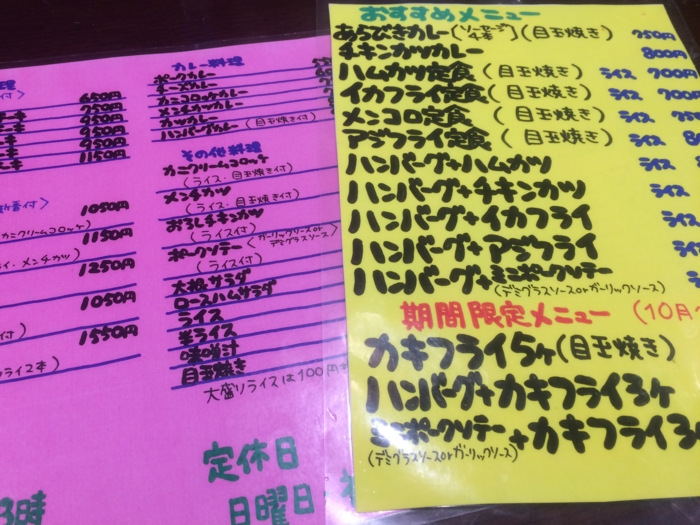 料理
650円
750円
950円
950円
950円
1150円
付〉
1050円
カニクリームコロッケ〉
1150円
イ・メンチカツ〉
1250円
1050円
1550円
フライ2本〉
3時
カレー料理
ポークカレー
チーズカレー
カニコロッケカレー
メンチカツカレー
カツカレー
ハンバーグカレー (目玉焼き付)
その他料理
カニクリームコロッケ
(ライス・目玉焼き付)
メンチカツ
(ライス・目玉焼き付)
おろしチキンカツ
(ライス付)
ポークソテー〈ガーリックソースorデミグラスソース〉
(ライス付)
大根サラダ
ロースハムサラダ
ライス
半ライス
味噌汁
目玉焼き
大盛りライスは100円
定休日
日曜日・
おすすめメニュー
あらびきカレー[ソーセージ4本](目玉焼き) 750円
チキンカツカレー 800円
ハムカツ定食(目玉焼き) ライス 700円
イカフライ定食(目玉焼き) ライス 700
メンコロ定食(目玉焼き) ライス
アジフライ定食(目玉焼き) ライス
ハンバーグ+ハムカツ ライス
ハンバーグ+チキンカツ ライス
ハンバーグ+イカフライ ライス
ハンバーグ+アジフライ ライ
ハンバーグ+ミニポークソテー ライ
(デミグラスソースorガーリックソース)
期間限定メニュー (10月
カキフライ5ヶ(目玉焼き)
ハンバーグ+カキフライ3ヶ
ミニポークソテー+カキフライ3ヶ
(デミグラスソースorガーリックソース)